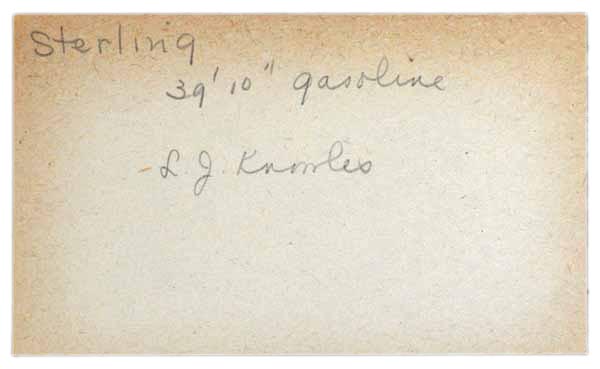 Sterling
39' 10" gasoline
L. J. Knowles